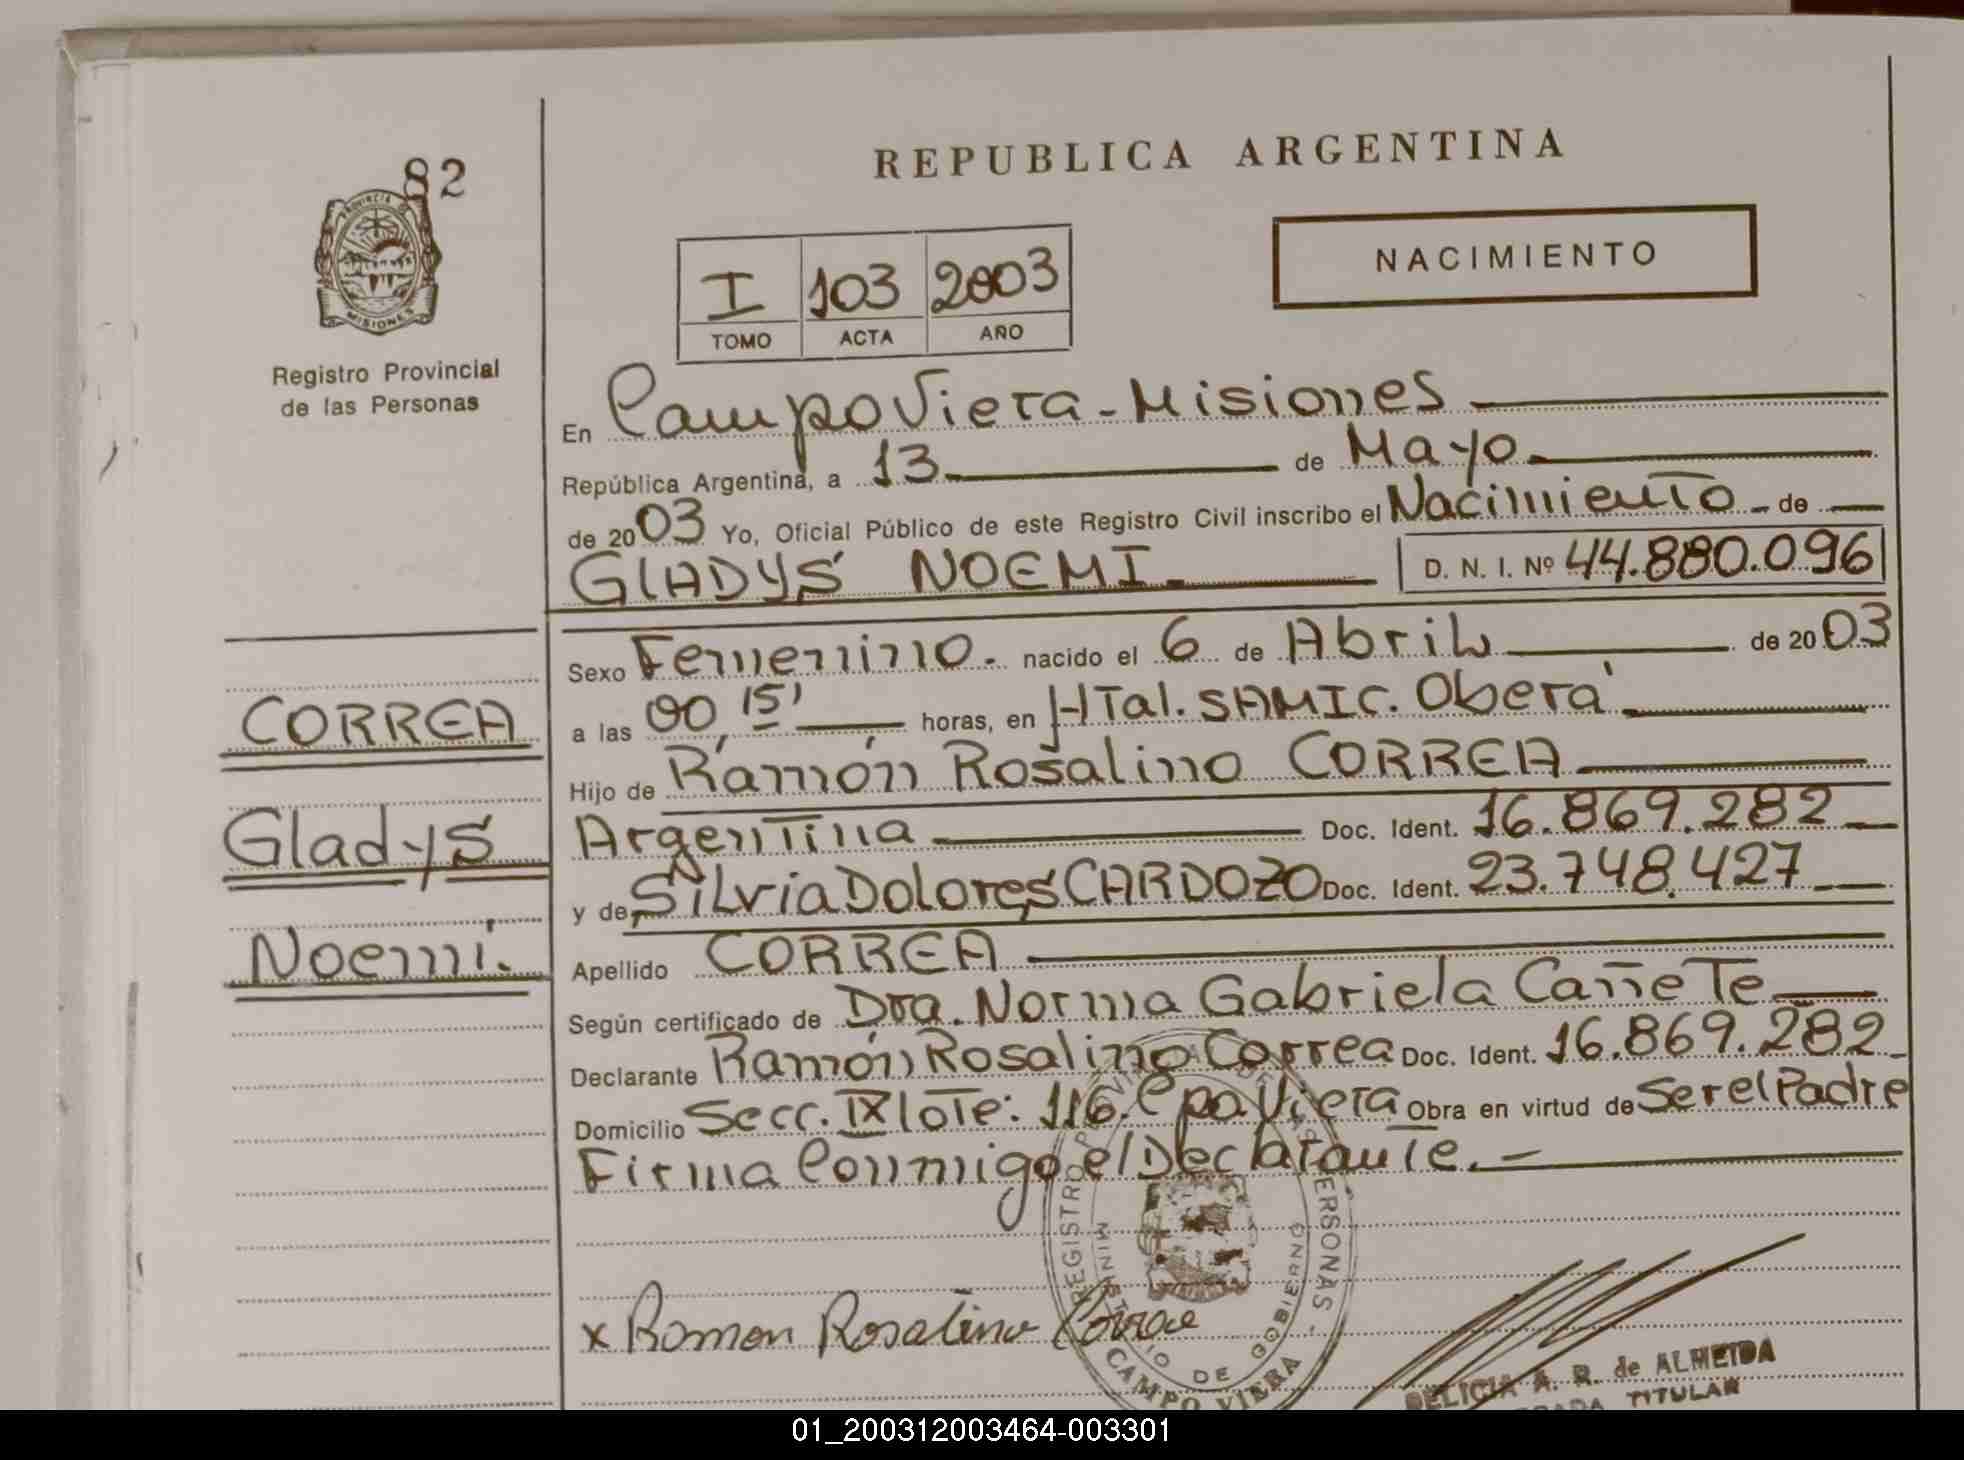 82
PROVINCIA DE
MISIONES
Registro Provincial
de las Personas
REPUBLICA ARGENTINA
NACIMIENTO
I 103 2003
TOMO ACTA AÑO
En Campo Viera - Misiones
República Argentina, a 13 de Mayo
de 2003 Yo, Oficial Público de este Registro Civil inscribo el Nacimiento - de
GLADYS NOEMI. D. N. I. Nº 44.880.096
Sexo Femenino. nacido el 6 de Abril de 2003
a las 00,15' horas, en HTal. SAMIC. Oberá
Hijo de Ramón Rosalino CORREA
Argentina Doc. Ident. 16.869.282
y de Silvia Dolores CARDOZO Doc. Ident. 23.748.427
Apellido CORREA
Según certificado de Dra. Norma Gabriela Cañete
Declarante Ramón Rosalino Correa Doc. Ident. 16.869.282
Domicilio Secc. IX lote: 116. Cpo. Viera Obra en virtud de Ser el Padre
Firma Conmigo el Declarante. -
CORREA
Gladys
Noemí.
x Ramon Rosalino Correa
REGISTRO PROVINCIAL DE LAS PERSONAS -
MINISTERIO DE GOBIERNO
CAMPO VIERA
DELICIA A. R. de ALMEIDA
TITULAR
01_200312003464-003301